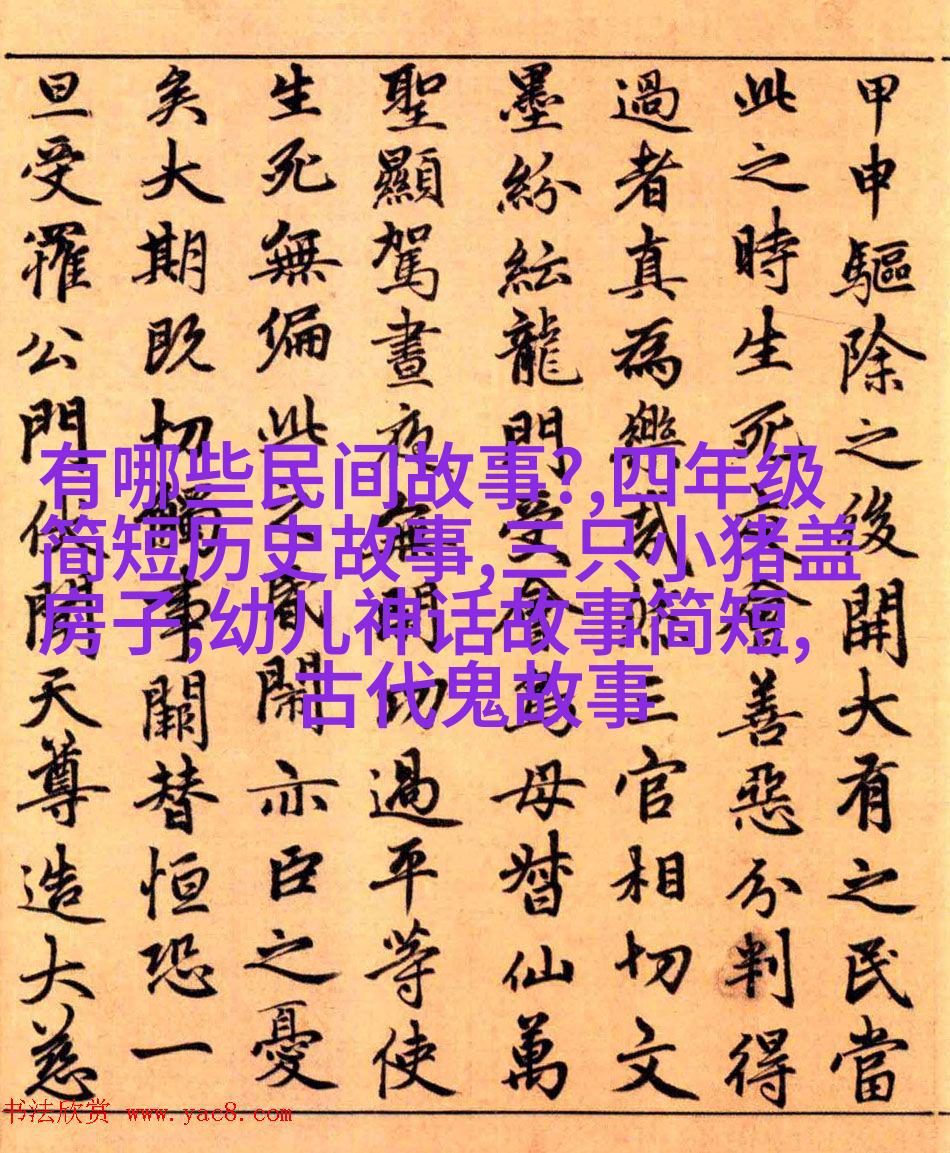 甲申驅除之後開大有之民當
此之時生死會善惡分判得
過者真為樂哉三官相切文
墨紛紜龍門受會為母督仙萬
聖顯駕晝夜無門切過平等使
生死無偏此之閒亦臣之憂
矣大期既切觸事闕替恒恐一
旦受罹公門伏聞天尊造大慈
有哪些民间故事?,四年级
简短历史故事,三只小猪盖
房子,幼儿神话故事简短,
古代鬼故事
书法欣赏 www.yac8.com